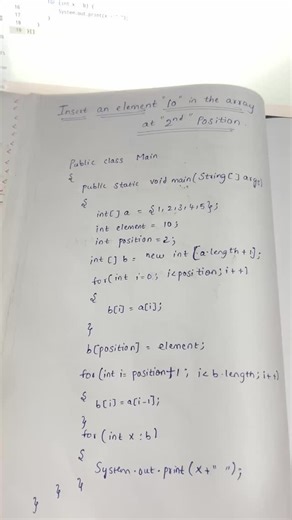 16
17
18
19
Insert an element "10" in the array
at "2nd" Position
Public class Main
{
public static void main(String[] args)
{
int[] a = {1,2,3,4,5};
int element = 10;
int position = 2;
int [] b = new int [a.length+1];
for(int i=0; i<position; i++)
{
b[i] = a[i];
}
b[position] = element;
for(int i= position+1; i<b.length; i++)
{ b[i]=a[i-1];
}
for(int x:b)
{
System.out.print(x+" ");
} } }